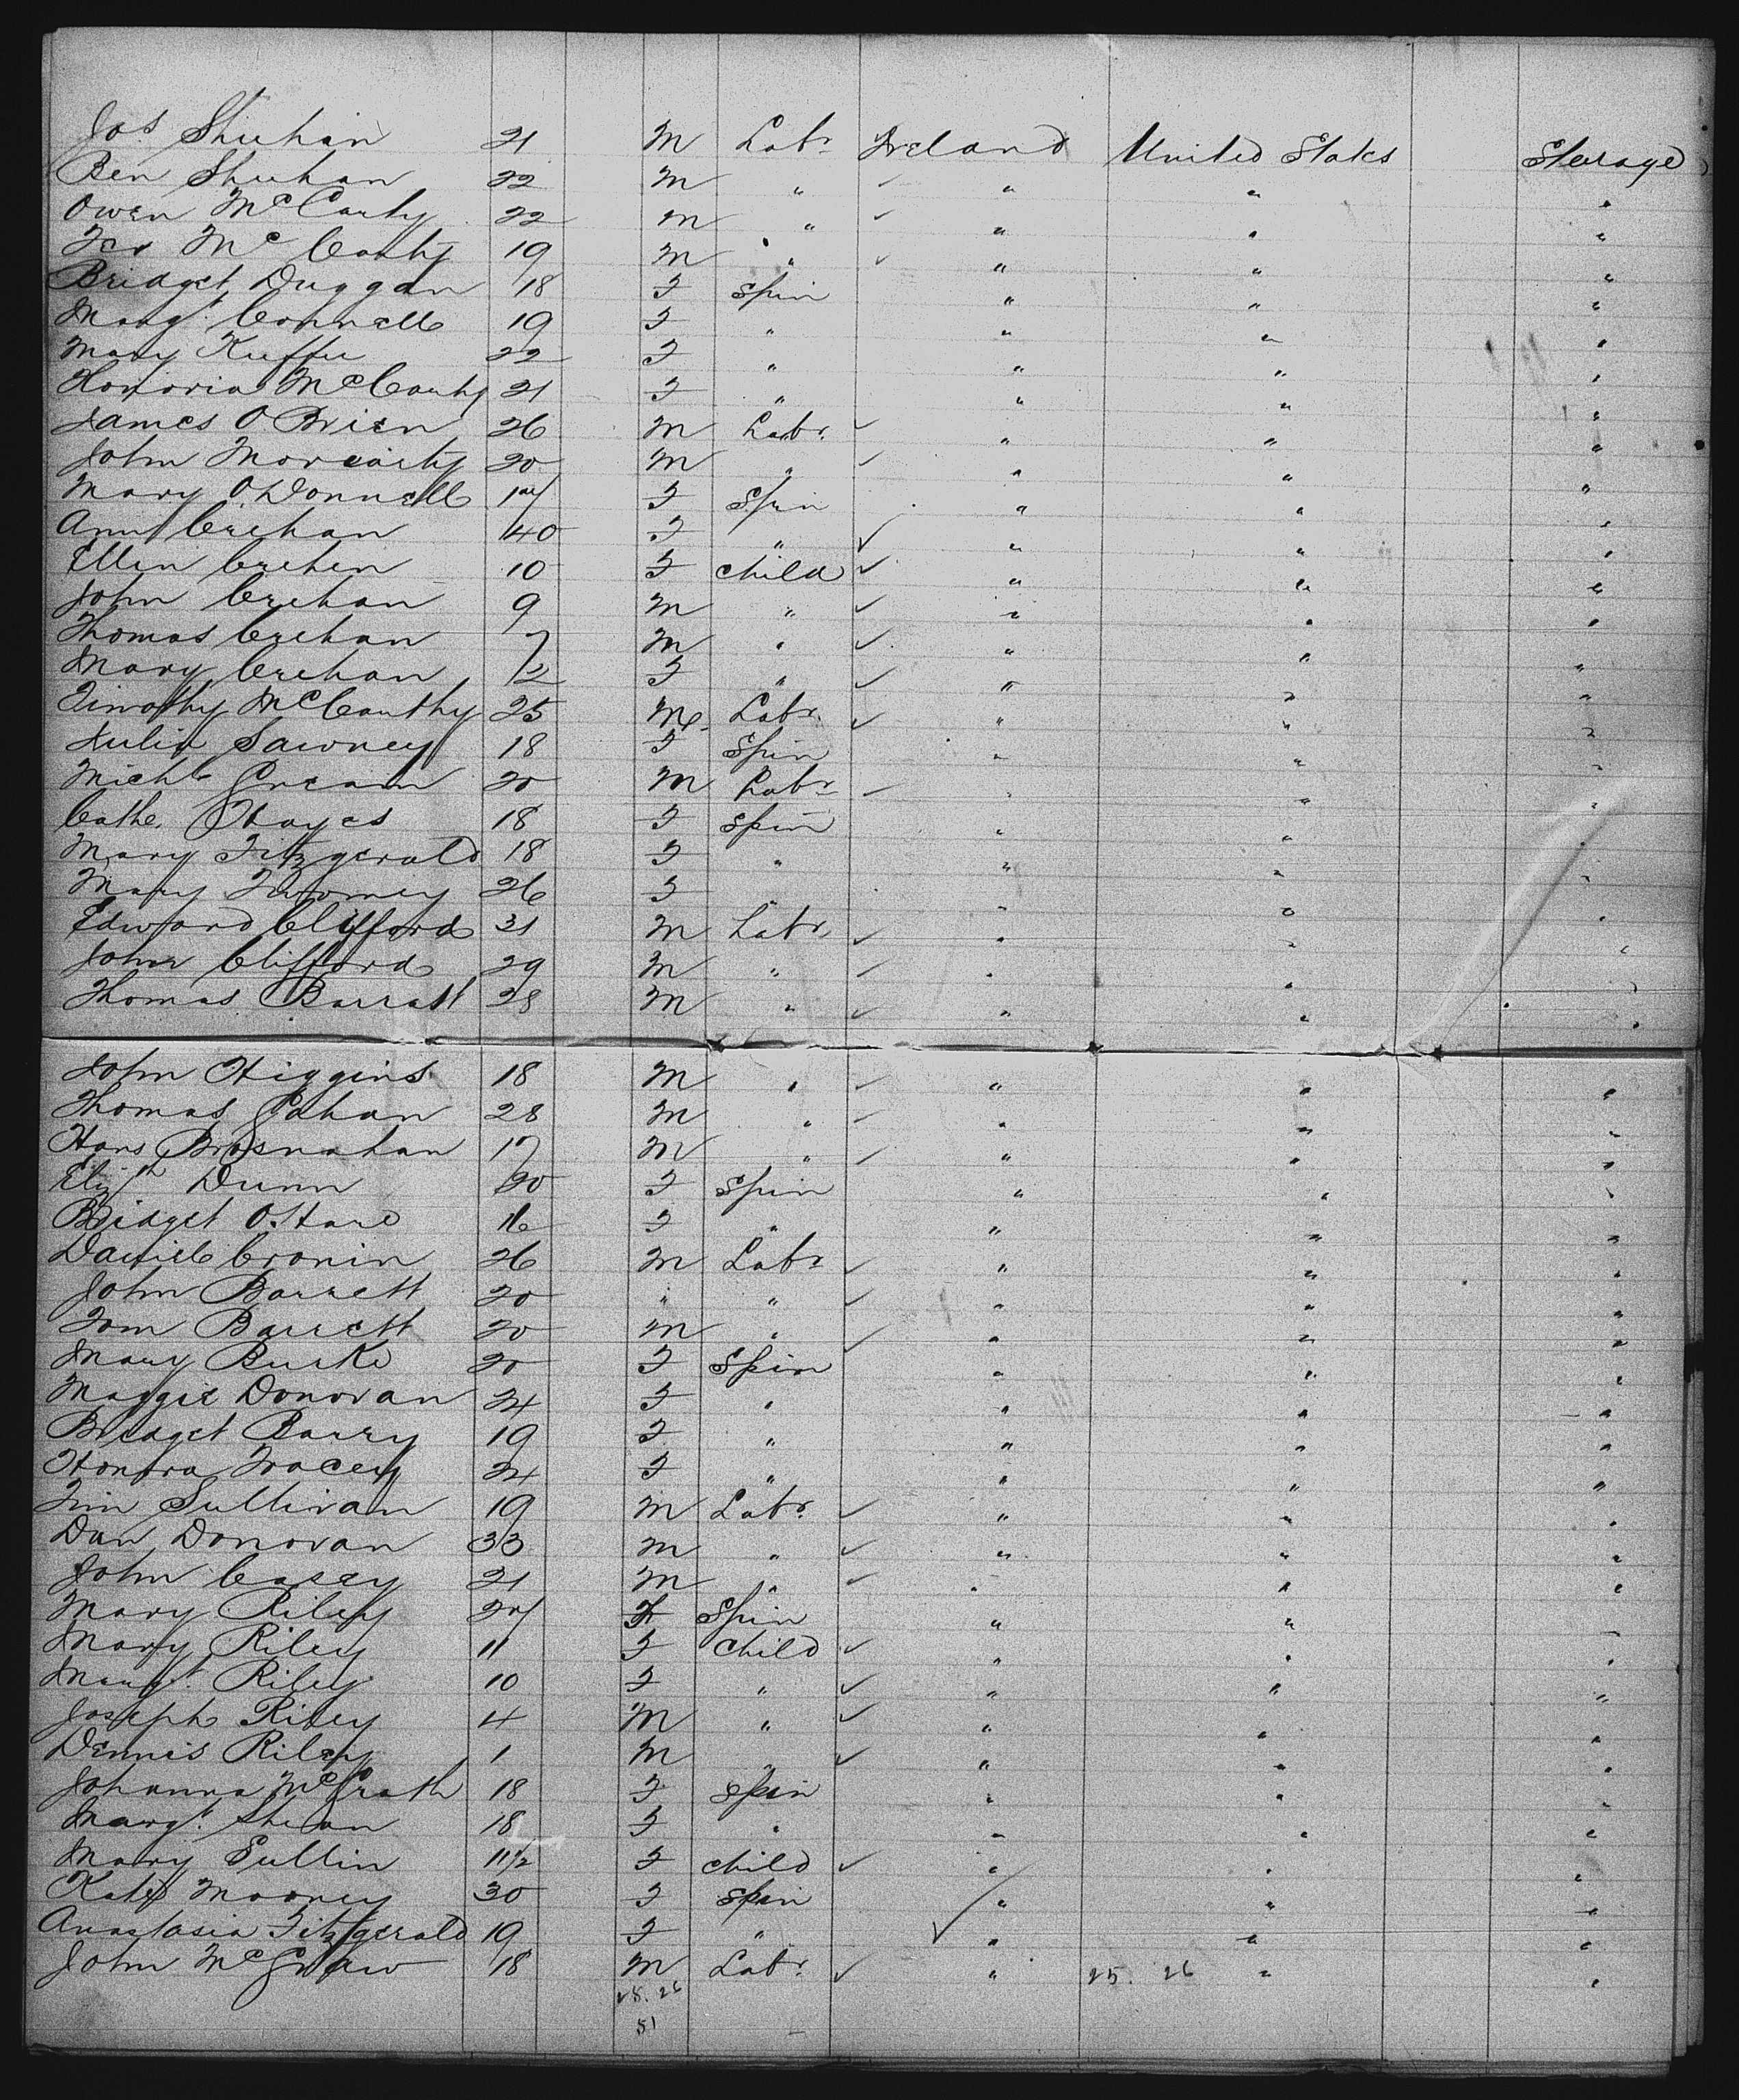 Jas. Shuhan 21 M Labr Ireland United States Steerage
Ben Shuhan 22 M " " " "
Owen McCarty 22 M " " " "
McCarty 19 M " " " "
Bridget Duggan 18 F Spin " " "
Margt. Connell 19 F " " " "
Mary Kuffee 22 F " " " "
Honoria McCarty 21 F " " " "
James O Brien 26 M Labr. " " "
John Morearity 20 M " " " "
Mary O'Donnell 17 F Spin " " "
Ann Crehan 40 F " " " "
Ellen Crehen 10 F Child " " "
John Crehan 9 M " " " "
Thomas Crehan 7 M " " " "
Mary Crehan 1/2 F " " " "
Timothy McCarthy 25 M Labr. " " "
Julia Sawney 18 F Spin " " "
Michl 20 M Labr " " "
Cathe. Hayes 18 F Spin " " "
Mary Fitzgerald 18 F " " " "
Mary Twomey 26 F " " "
Edward Clifford 31 M Labr. " " "
John Clifford 29 M " " " "
Thomas Barratt 28 M " " " "
John Higgins 18 M " " " "
Thomas Gahan 28 M " " " "
Hans Brosnahan 17 M " " " "
Elizth Dunn 20 F Spin " " "
Bridget O'Hare 16 F " " " "
Daniel Cronin 26 M Labr " " "
John Barrett 20 " " " " "
Tom Barrett 20 M " " " "
Mary Burke 20 F Spin " " "
Maggie Donovan 24 F " " " "
Bridget Barry 19 F " " " "
Honora Tracey 24 F " " " "
Tim Sullivan 19 M Labr. " " "
Dan Donovan 33 M " " " "
John Casey 21 M " " " "
Mary Riley 27 F Spin " " "
Mary Riley 11 F Child " " "
Margt. Riley 10 F " " " "
Joseph Riley 4 M " " " "
Dennis Riley 1 M " " " "
Johanna McGrath 18 F Spin " " "
Margt. Shean 18 F " " " "
Mary Sullin 11 1/2 F Child " " "
Kate Mooney 30 F Spin " " "
Anastasia Fitzgerald 19 F " " " "
John McGraw 18 M Labr. " 25. 26 " "
25. 26
51